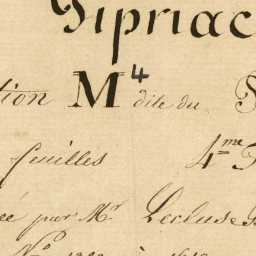 Pipriac
tion M 4 dite du S
feuilles 4me F
ée par Mr Lecluse
No à